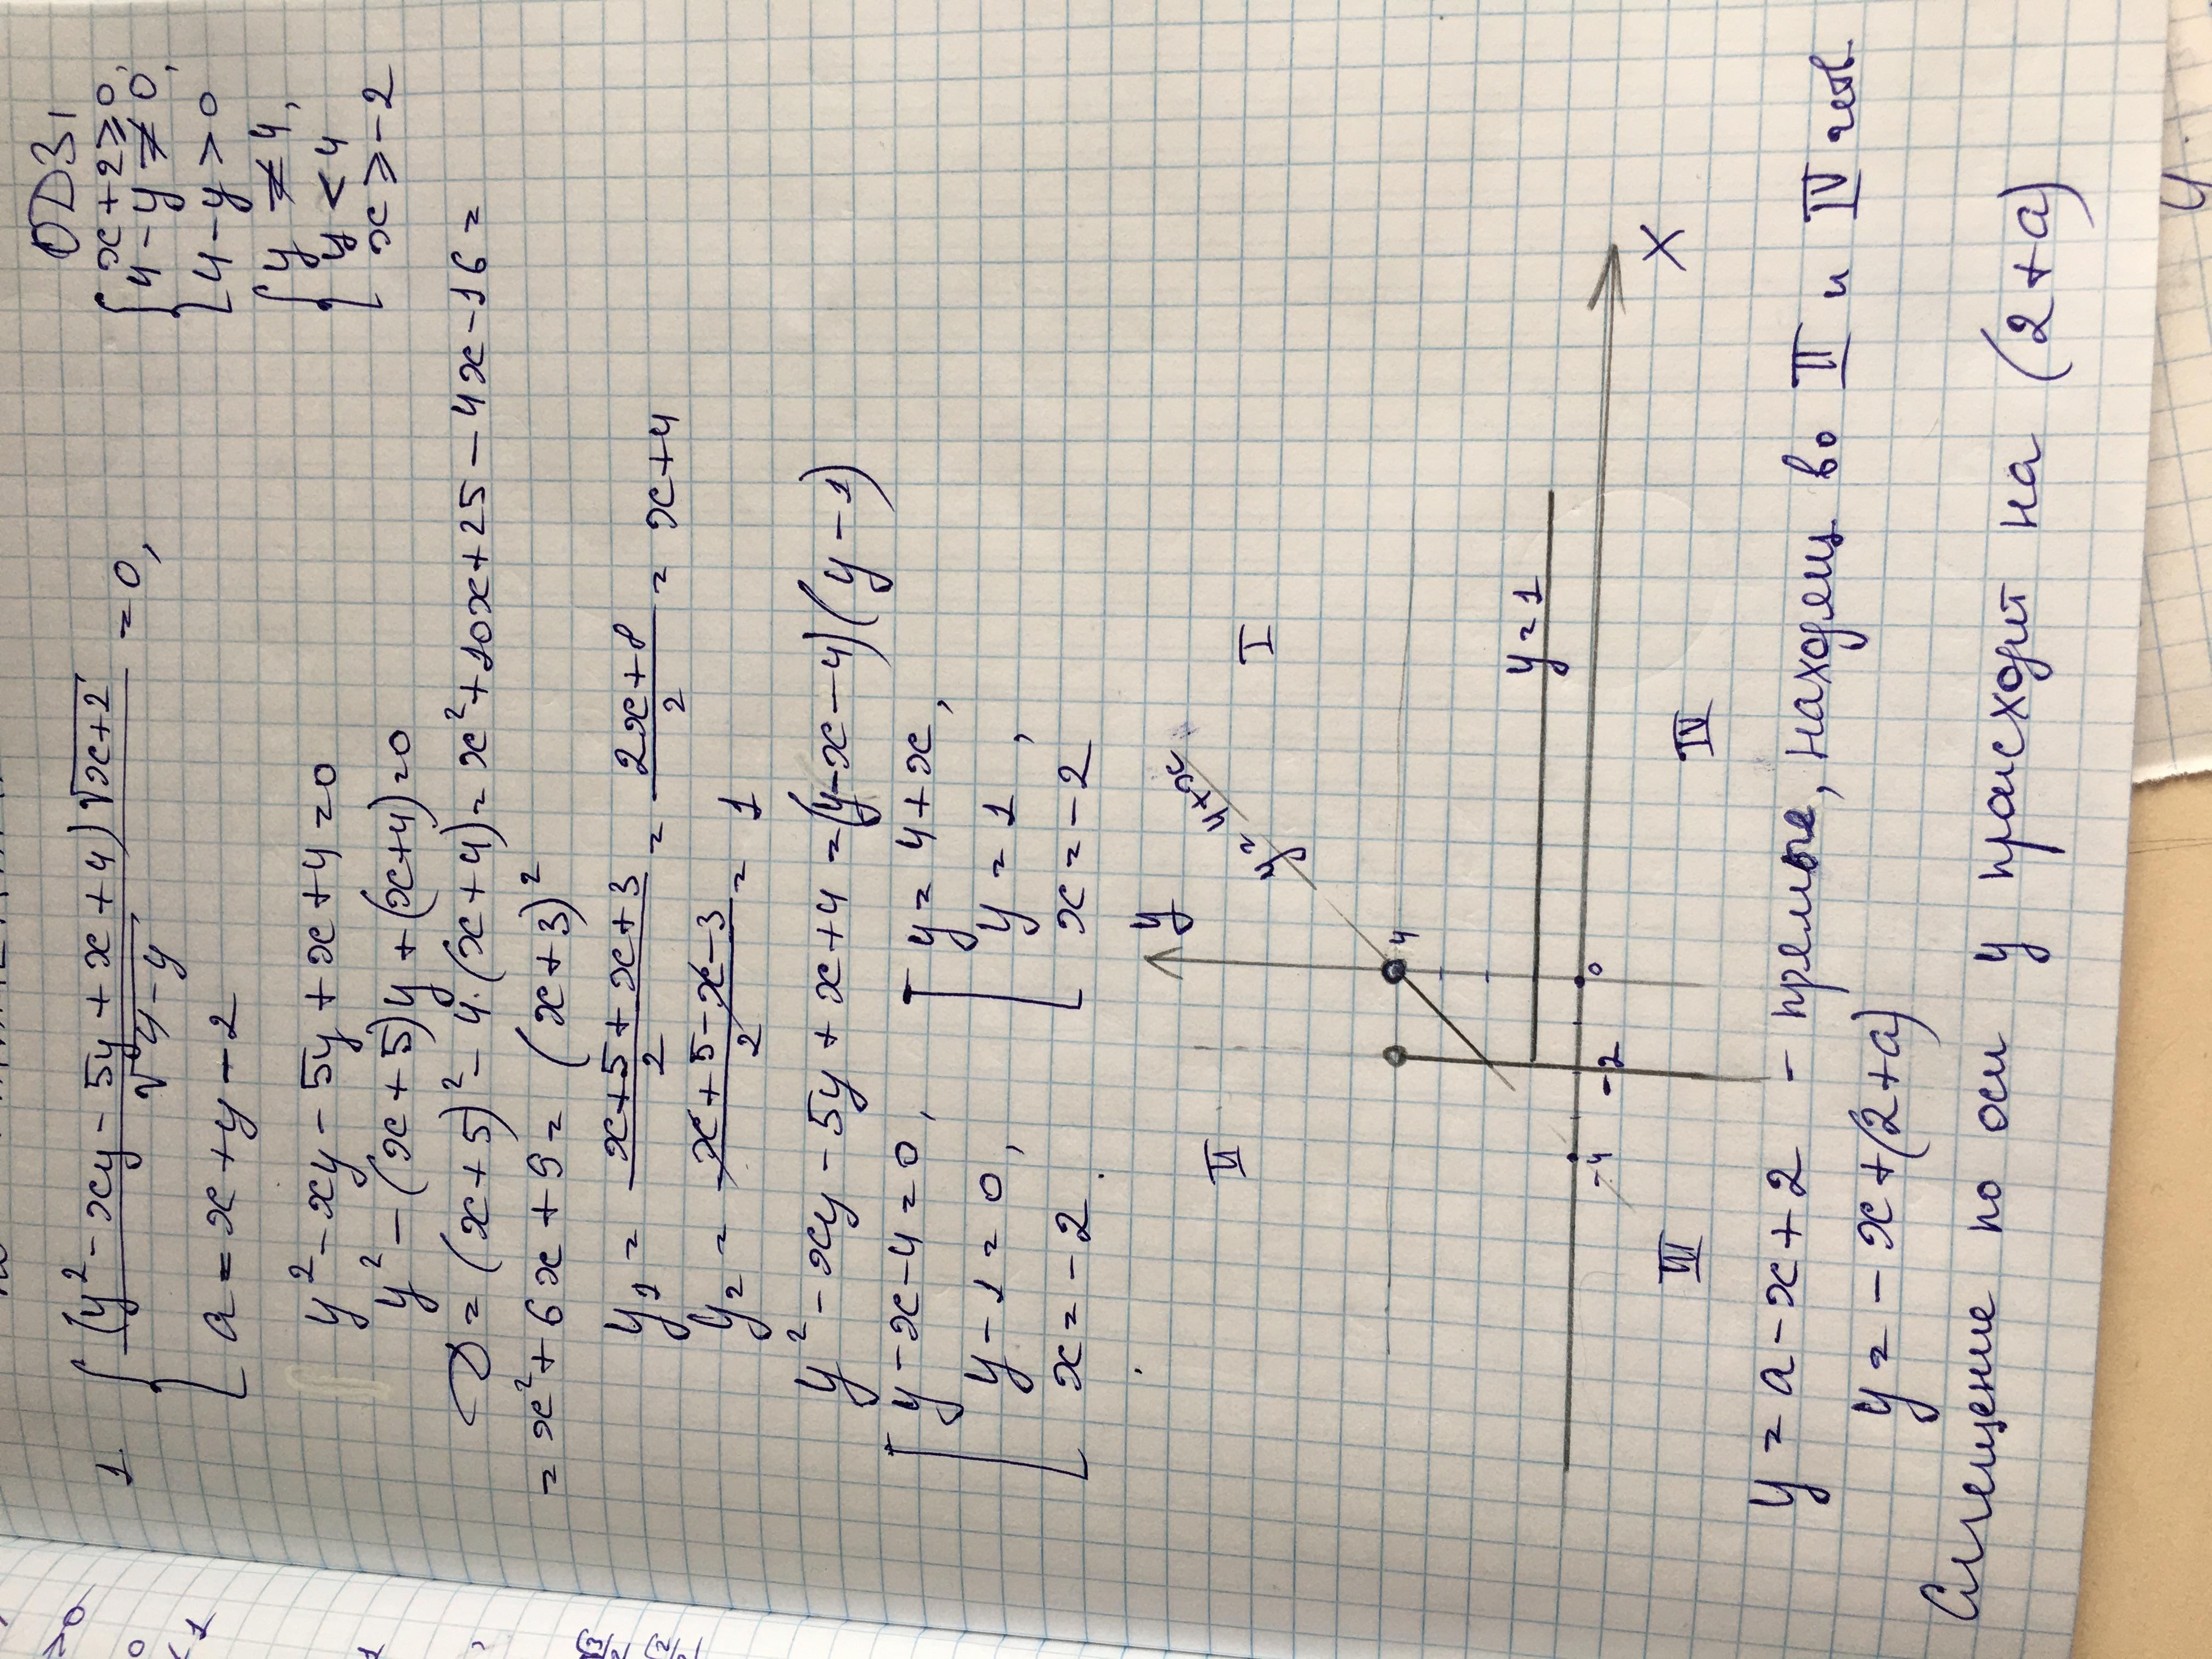 1. {(y² - xy - 5y + x + 4)√x+2 / √4-y = 0,
a = x + y - 2
ОДЗ:
{x + 2 ≥ 0,
4 - y ≠ 0,
4 - y > 0
{y ≠ 4,
y < 4
x ≥ -2
y² - xy - 5y + x + 4 = 0
y² - (x + 5)y + (x+4) = 0
D = (x + 5)² - 4·(x + 4) = x² + 10x + 25 - 4x - 16 =
= x² + 6x + 9 = (x + 3)²
y₁ = x+5 + x+3 / 2 = 2x + 8 / 2 = x + 4
y₂ = x + 5 - x - 3 / 2 = 1
y² - xy - 5y + x + 4 = (y - x - 4)(y - 1)
[y - x - 4 = 0,
y - 1 = 0,
x = -2
[y = 4 + x,
y = 1,
x = -2
y
y = 4+x
II
I
4
y = 1
-4
-2
0
X
III
IV
y = a - x + 2 - прямые, находящ во II и IV четв.
y = - x + (2 + a)
Смещение по оси y происходит на (2 + a)